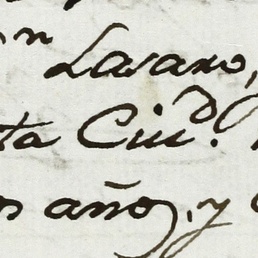 n Lasaro,
ta Ciud.
os años, y